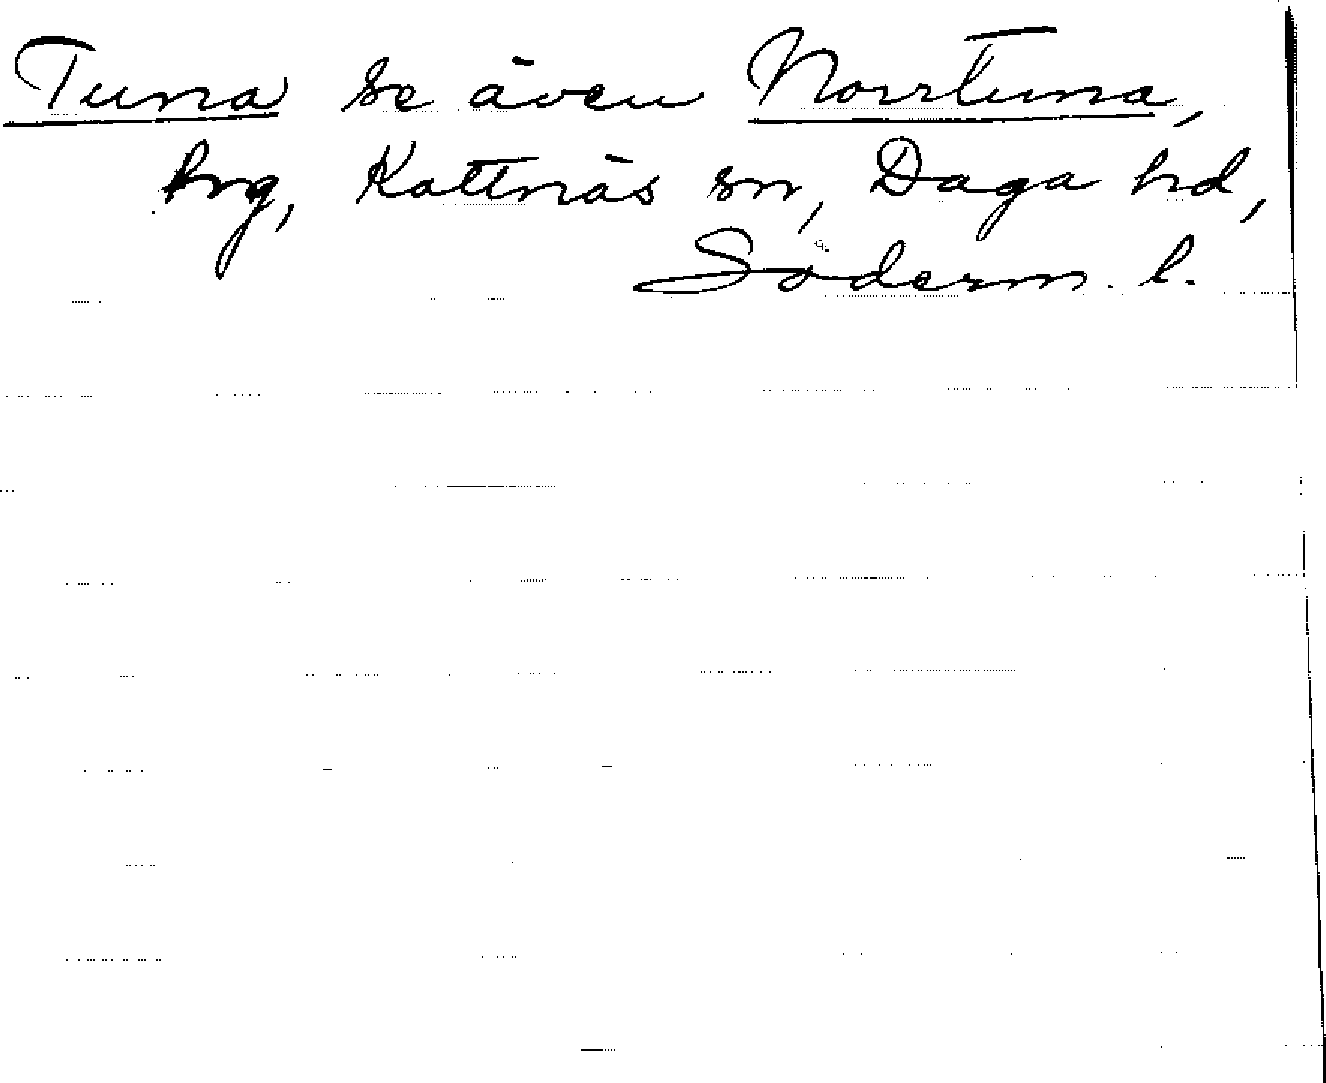 Tuna se även Norrtuna,
hng, Kattnäs sn, Daga hd,
Söderm. l.